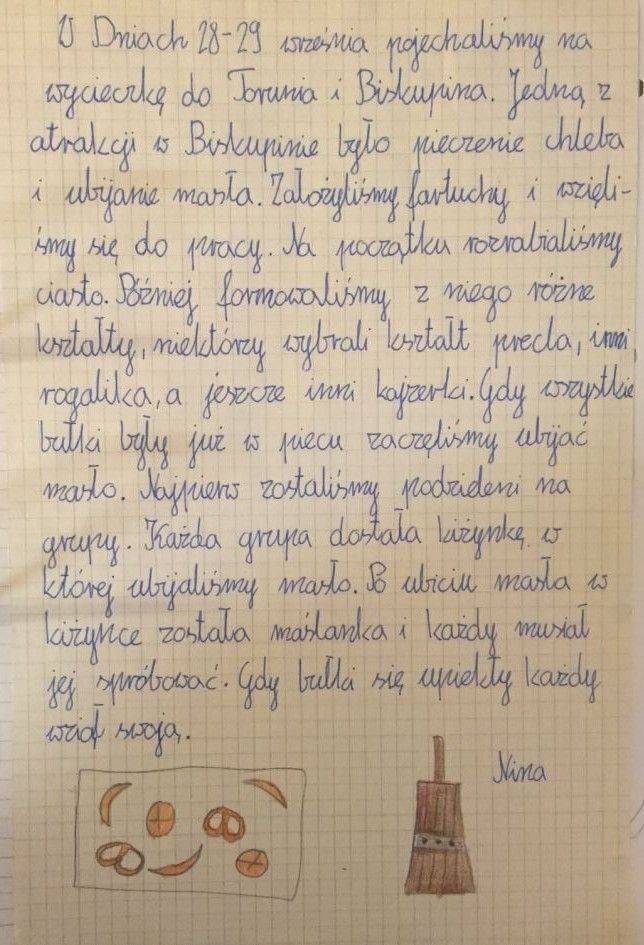 W Dniach 28-29 września pojechaliśmy na
wycieczkę do Torunia i Biskupina. Jedną z
atrakcji w Biskupinie było pieczenie chleba
i ubijanie masła. Założyliśmy fartuchy i wzięli-
śmy się do pracy. Na początku rozrabialiśmy
ciasto. Później formowaliśmy z niego różne
kształty, niektórzy wybrali kształt precla, inni,
rogalika, a jeszcze inni kajzerki. Gdy wszystkie
bułki były już w piecu zaczęliśmy ubijać
masło. Najpierw zostaliśmy podzieleni na
grupy. Każda grupa dostała kiżynkę w
której ubijaliśmy masło. Po ubiciu masła w
kiżynce została maślanka i każdy musiał
jej spróbować. Gdy bułki się upiekły każdy
wziął swoją.
Nina